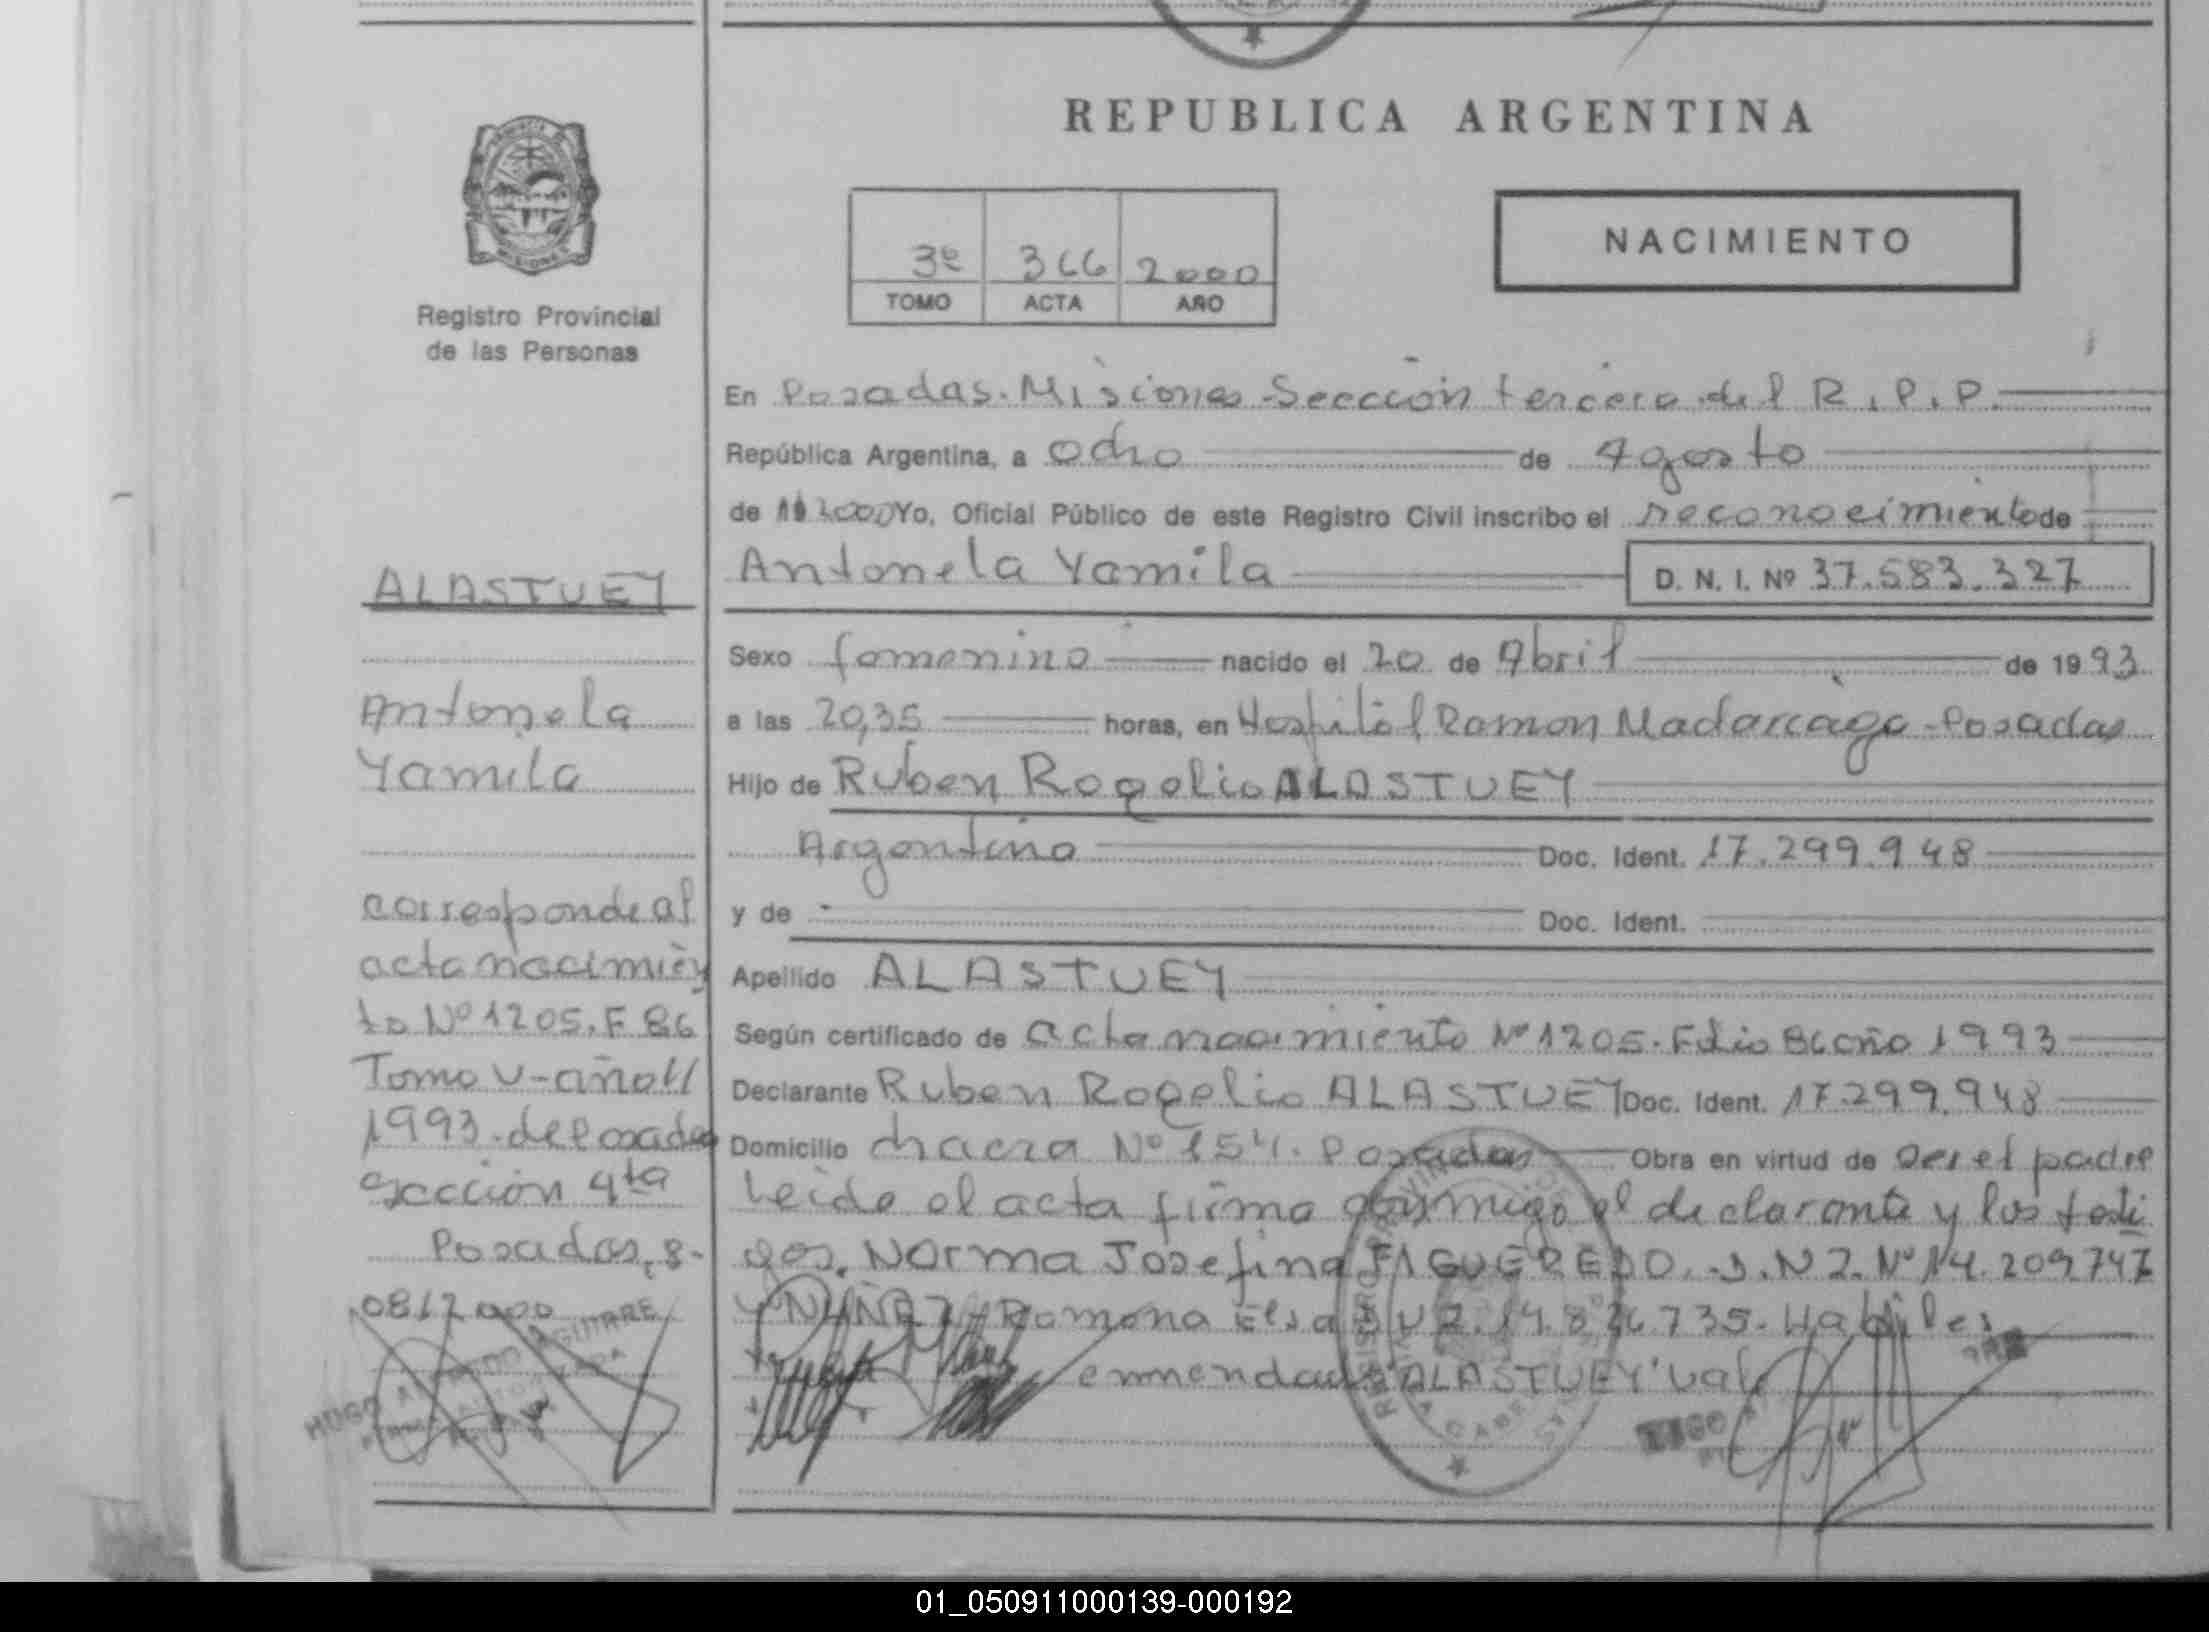 REPUBLICA ARGENTINA
Registro Provincial
de las Personas
3º 366 2000
TOMO ACTA AÑO
NACIMIENTO
En Posadas. Misiones - Sección tercera del R.P.P.
República Argentina, a ocho de Agosto
de 2000 Yo, Oficial Público de este Registro Civil inscribo el reconocimiento de
Antonela Yamila D. N. I. Nº 37.583.327
Sexo femenino nacido el 20 de Abril de 1993
a las 20,35 horas, en Hospital Ramon Madariaga - Posadas
Hijo de Ruben Rogelio ALASTUEY
Argentino Doc. Ident. 17.299.948
y de Doc. Ident.
Apellido ALASTUEY
Según certificado de acta nacimiento Nº 1205. Folio 86 año 1993
Declarante Ruben Rogelio ALASTUEY Doc. Ident. 17.299.948
Domicilio chacra Nº 154. Posadas Obra en virtud de ser el padre
Leida el acta firma conmigo el declarante y los testi
gos. Norma Josefina FIGUEREDO. D.N.I. Nº 14.209.747
y NUÑEZ Ramona Elsa 14.8 6.735. Habiles
enmendado "ALASTUEY" vale
ALASTUEY
Antonela
Yamila
corresponde al
acta nacimien
to Nº 1205. F 86
Tomo V - año
1993. de Posadas
sección 4ta
Posadas, 8-
08/2000
HUGO AGUIRRE
01_050911000139-000192